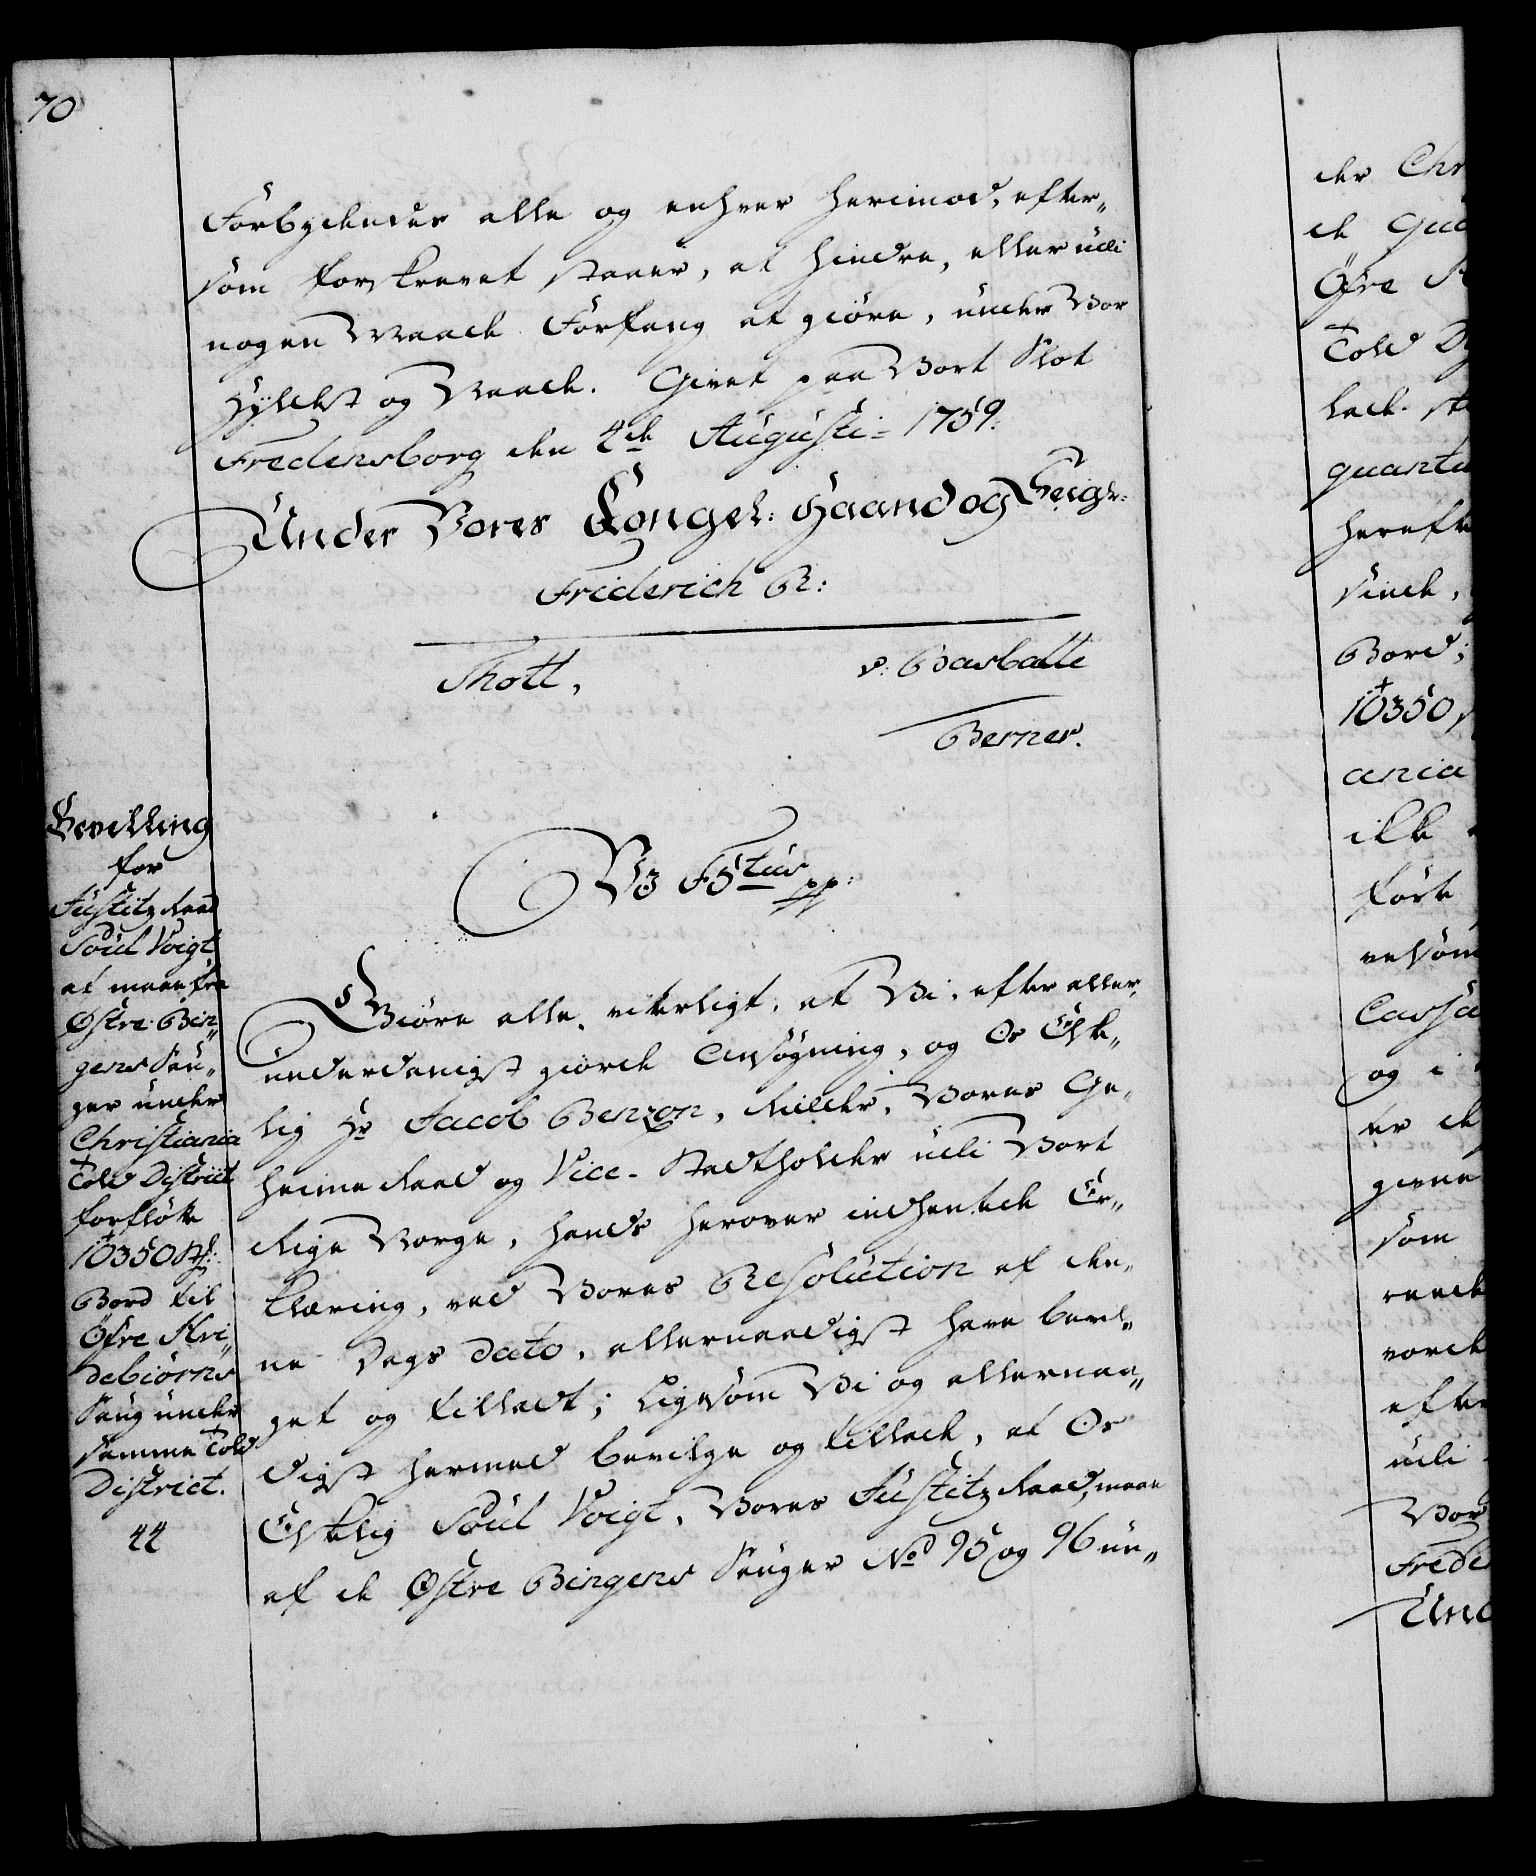 70
Forbydendes alle og enhver herimod, efter„
som forskrevet staaer, at hindre, eller udi
nogen Maade Forfang at giöre, under Vor
Hyldest og Naade. Givet paa Vort Slot
Fredensborg den 4de Augusti 1759.
Under Vores Kongel: Haand og Seigl:
Friderich R:
Thott,
Berner.
Bevilling
for
Justitz Raad
Poul Voigt,
at maae fra
Østre Bin„
gens Sau„
ger under
Christiania
Told District
forfløtte
10350 St:
Bord til
Öfre Kri„
debiörns
Saug under
samme Told
District.
44
Vo F5tus pp:
Giöre alle vitterligt, at Vi, efter aller„
underdanigst giorde Ansøgning, og Os Elske„
lig Hr Jacob Benzon, Ridder, Vores Ge„
heime Raad og Vice-Stadtholder udi Vort
Rige Norge, hands herover indhentede Er„
klæring, ved Vores Resolution af den„
ne Dags Dato, allernaadigst have bevil„
get og tilladt; Ligesom Vi og allernaa„
digst hermed bevilge og tillade, at Os
Elskelig Poul Voigt, Vores Justitz Raad, maae
af de Østre Bingens Sauger No 95 og 96 un„
der Chr
de
Öfre
Told
lade
quantu
herefte
sinde,
Bord;
10350
ania
ikke
förte
velsom
Cassa
og i
er de
givne
som
vorde
efter
udi
Vor
Freden
Und